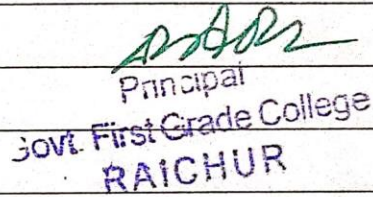 Principal
Govt. First Grade College
RAICHUR